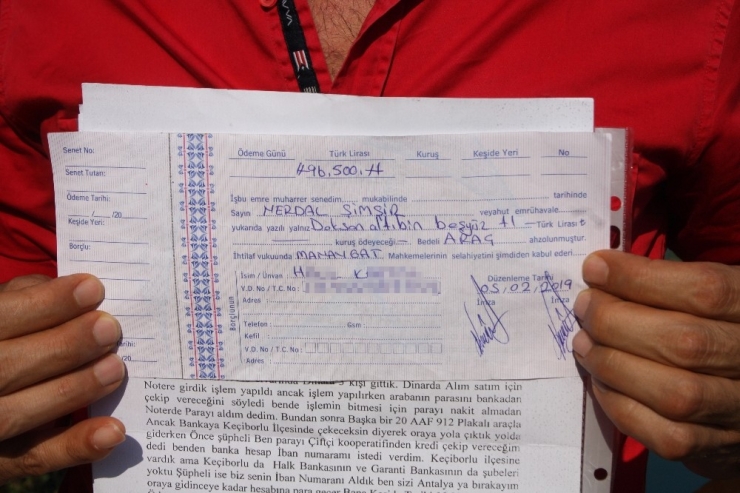 Senet No:
Senet Tutarı:
Ödeme Tarihi:
___/___/20
Keşide Yeri:
Borçlu:
Ödeme Günü Türk Lirası Kuruş Keşide Yeri No
#96.500.#
İşbu emre muharrer senedim. mukabilinde tarihinde
Sayın MERDAL ŞİMŞİR veyahut emrühavale
yukarıda yazılı yalnız Doksanaltıbin beşyüz tl Türk Lirası
kuruş ödeyeceğim. Bedeli ARAÇ ahzolunmuştur.
İhtilaf vukuunda MANAVGAT Mahkemelerinin selahiyetini şimdiden kabul ederim.
Borçlunun
İsim / Ünvan H K
V.D. No / T.C. No :
Adres :
Telefon : Gsm :
Kefil :
V.D. No / T.C. No :
Adres :
Düzenleme Tarihi
05.02.2019
İmza İmza
3 kişi gittik. Dinarda Alım satım için
Notere girdik işlem yapıldı ancak işlem yapılırken arabanın parasını bankadan
çekip vereceğini söyledi bende işlemin bitmesi için parayı nakit almadan
Noterde Parayı aldım dedim. Bundan sonra Başka bir 20 AAF 912 Plakalı araçla
Ancak Bankaya Keçiborlu İlçesinde çekeceksin diyerek oraya yola çıktık yolda
giderken Önce şüpheli Ben parayı Çifiçi kooperatifinden kredi çekip vereceğim
dedi benden banka hesap İban numaramı istedi verdim. Keçiborlu ilçesine
vardık ama Keçiborlu da Halk Bankasının ve Garanti Bankasının da şubeleri
yoktu Şüpheli ise biz senin İban Numaranı Aldık ben sizi Antalya ya bırakayım
oraya gidinceye kadar hesabına para geçer